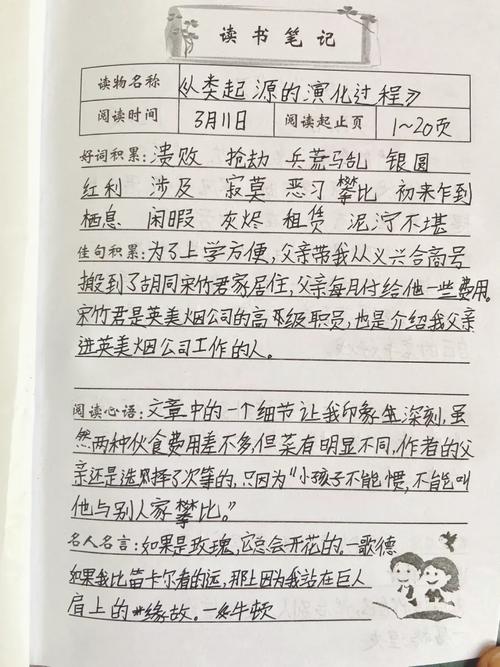 读书笔记
读物名称 《人类起源的演化过程》
阅读时间 3月11日 阅读起止页 1~20页
好词积累:溃败 抢劫 兵荒马乱 银圆
红利 涉及 寂莫 恶习 攀比 初来乍到
栖息 闲暇 灰烬 租赁 泥泞不堪
佳句积累:为了上学方便,父亲带我从义兴合商号
搬到了胡同宋竹君家居住,父亲每月付给他一些费用。
宋竹君是英美烟公司的高级职员,也是介绍我父亲
进英美烟公司工作的人。
阅读心语:文章中的一个细节让我印象深刻,虽
然两种伙食费用差不多,但菜有明显不同,作者的父
亲还是选择了次等的,只因为“小孩子不能惯,不能叫
他与别人家攀比。”
名人名言:如果是玫瑰,它总会开花的。—歌德
如果我比笛卡尔者的远,那上因为我站在巨人
肩上的缘故。—牛顿